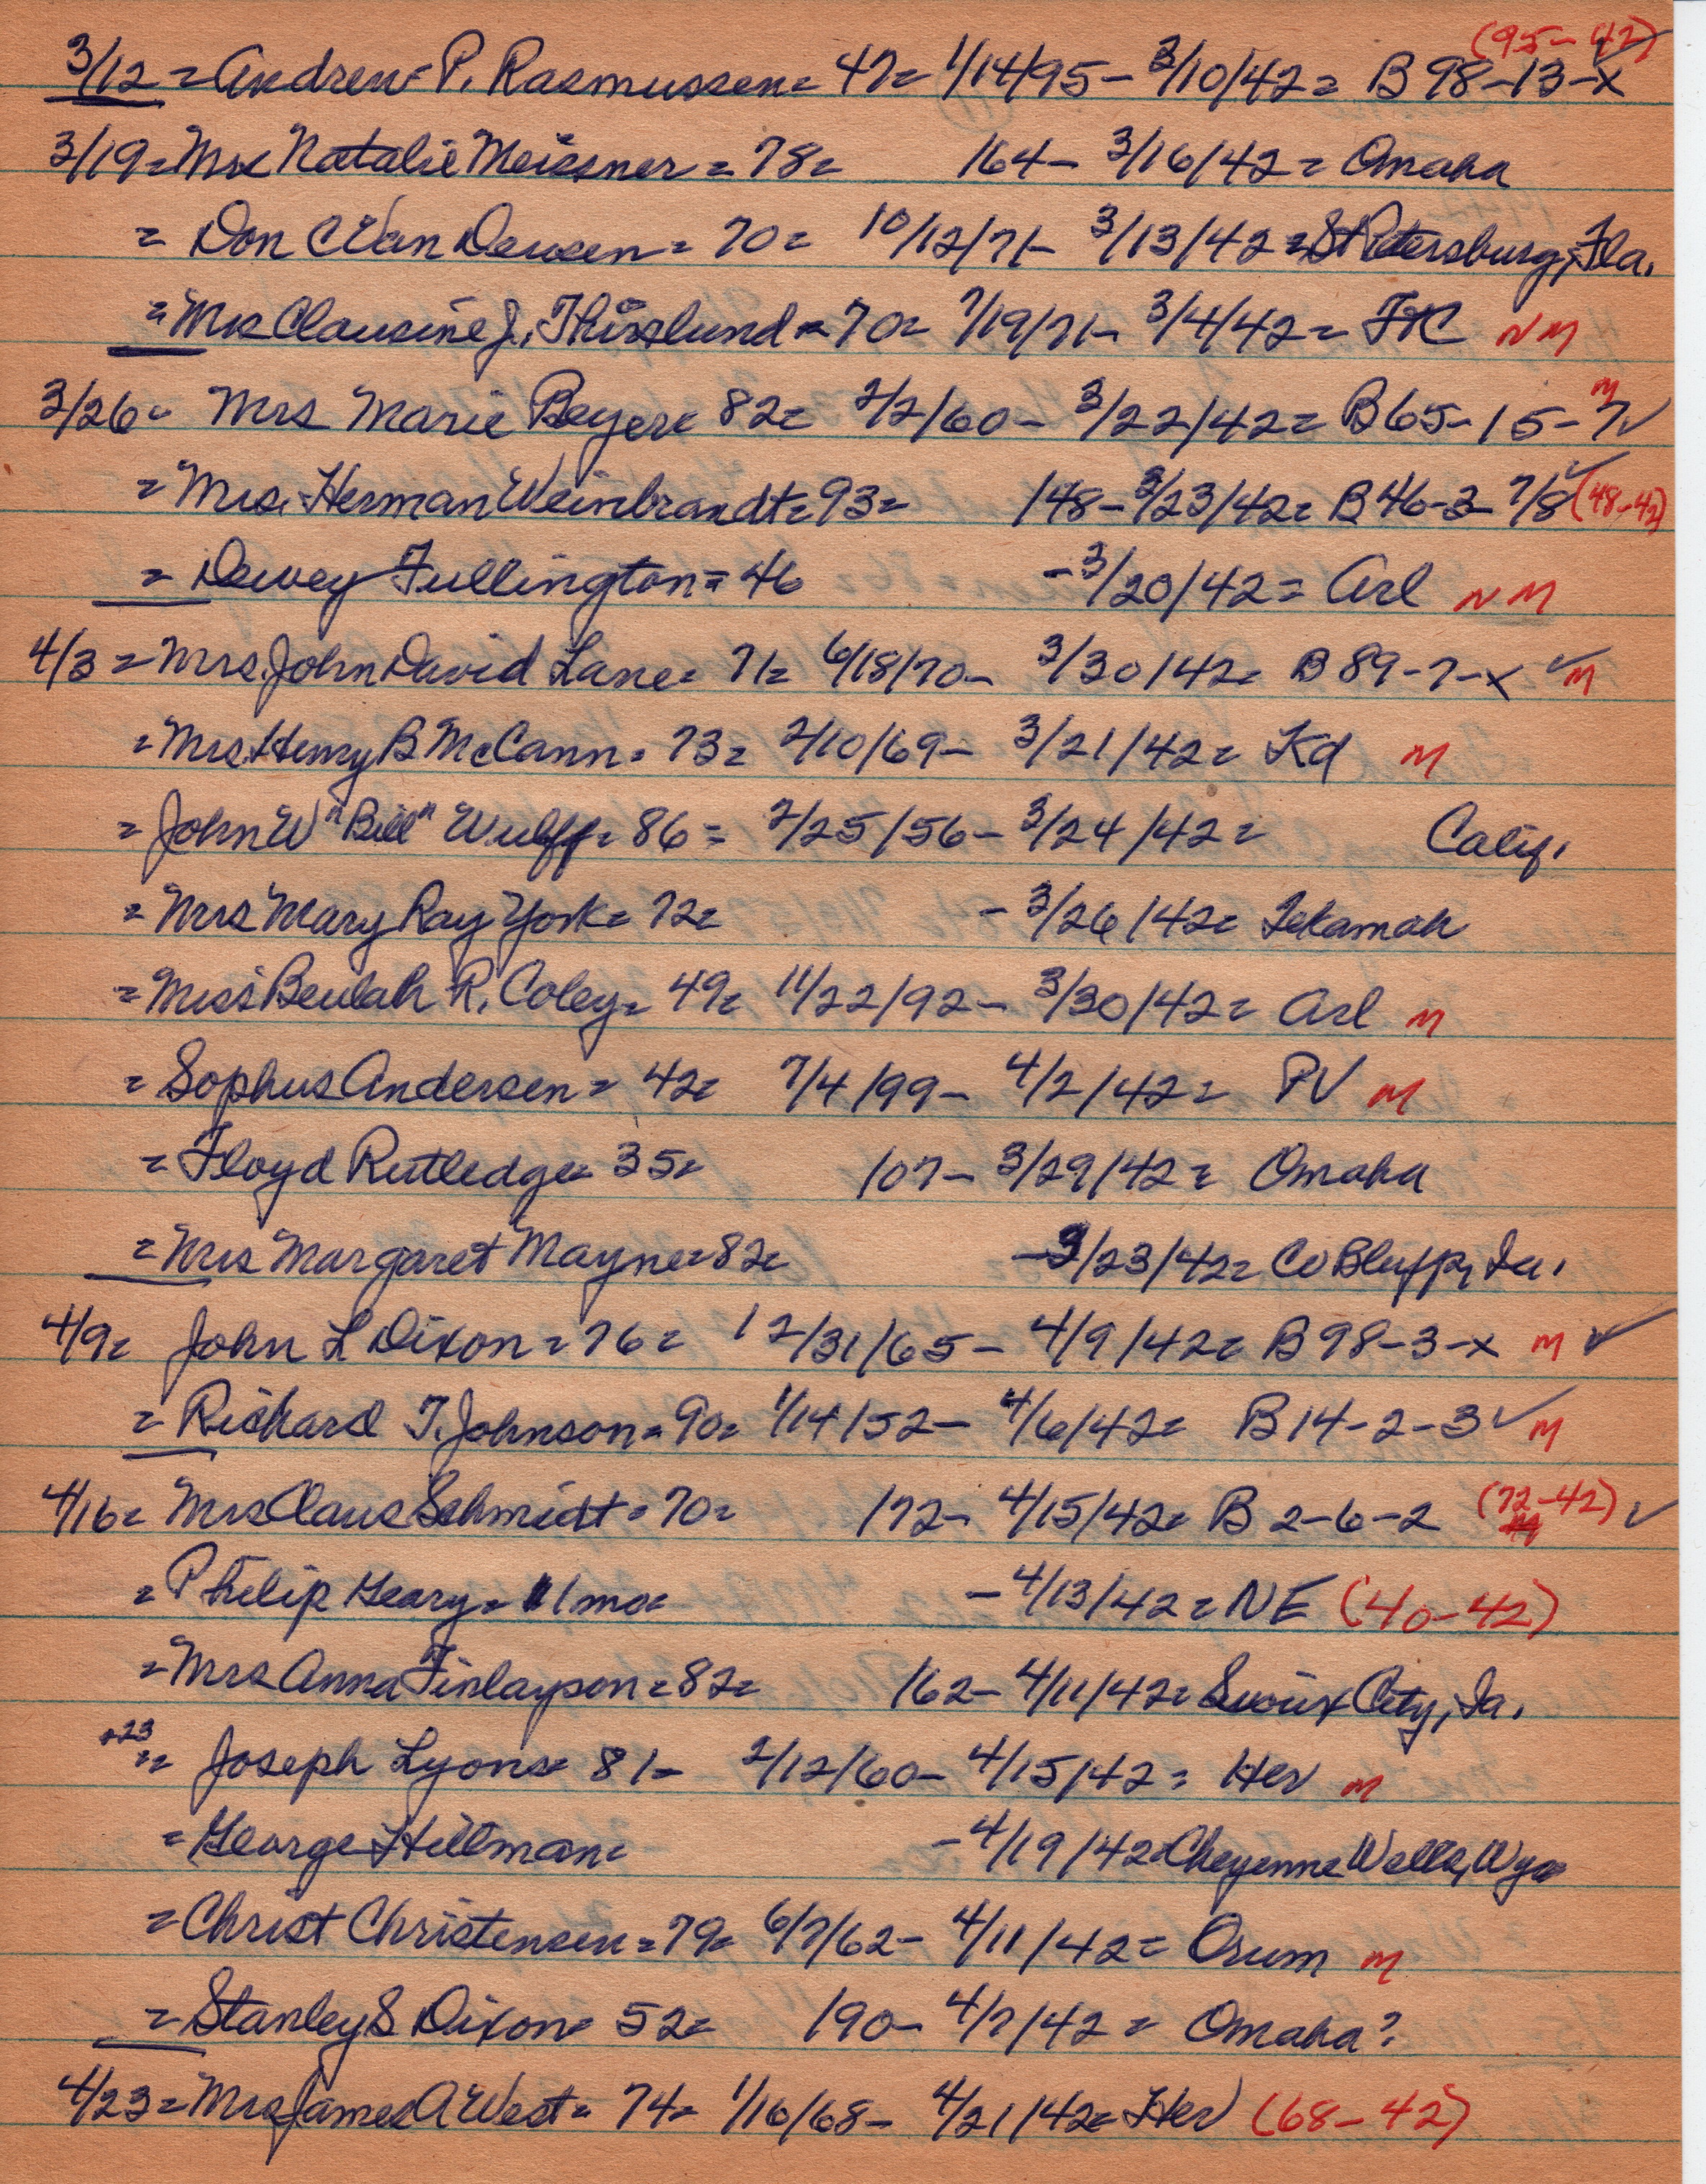 (95-42)
3/12 = Andrew P. Rasmussen = 47 = 1/14/95 - 3/10/42 = B 98-13-x ✓
3/19 = Mrs Natalie Meissner = 78 = /64 - 3/16/42 = Omaha
= Don C Van Deusen = 70 = 10/12/71 - 3/13/42 = St Petersburg, Fla.
= Mrs Clausine J. = 70 = 7/19/71 - 3/4/42 = NM
3/26 = Mrs Marie Beyer = 82 = 2/2/60 - 3/22/42 = B 65-15-7 ✓ M
= Mrs. Herman Weinbrandt = 93 = /48 - 3/23/42 = B 46-3 7/8 ✓ (48-42)
= Dewey Fullington = 46 - 3/20/42 = Arl NM
4/3 = Mrs. John David Lane = 71 = 6/18/70 - 3/30/42 = B 89-7-x ✓ M
= Mrs. Henry B McCann = 73 = 2/10/69 - 3/21/42 = Kd M
= John W "Bill" Wulff = 86 = 2/25/56 - 3/24/42 = Calif.
= Mrs Mary Ray York = 72 = - 3/26/42 = Tekamah
= Miss Beulah R. Coley = 49 = 11/22/92 - 3/30/42 = Arl M
= Sophus Andersen = 42 = 7/4/99 - 4/2/42 = PV M
= Floyd Rutledge = 35 = /07 - 3/29/42 = Omaha
= Mrs Margaret Mayne = 82 = - 3/23/42 = Co Bluffs, Ia.
4/9 = John L Dixon = 76 = 12/31/65 - 4/9/42 = B 98-3-x M ✓
= Richard T. Johnson = 90 = 1/14/52 - 4/6/42 = B 14-2-3 ✓ M
4/16 = Mrs Claus Schmidt = 70 = /72 - 4/15/42 = B 2-6-2 (72-42) ✓
= Philip Geary = 1 mo = - 4/13/42 = NE (40-42)
= Mrs Anna Finlayson = 82 = /62 - 4/11/42 = Sioux City, Ia.
+23 = Joseph Lyons = 81 - 2/12/60 - 4/15/42 = Her M
= George Hillman = - 4/19/42 = Cheyenne Wells, Wyo
= Christ Christensen = 79 = 6/7/62 - 4/11/42 = Orum M
= Stanley S Dixon = 52 = /90 - 4/7/42 = Omaha?
4/23 = Mrs James A West = 74 = 1/16/68 - 4/21/42 = Her (68-42)